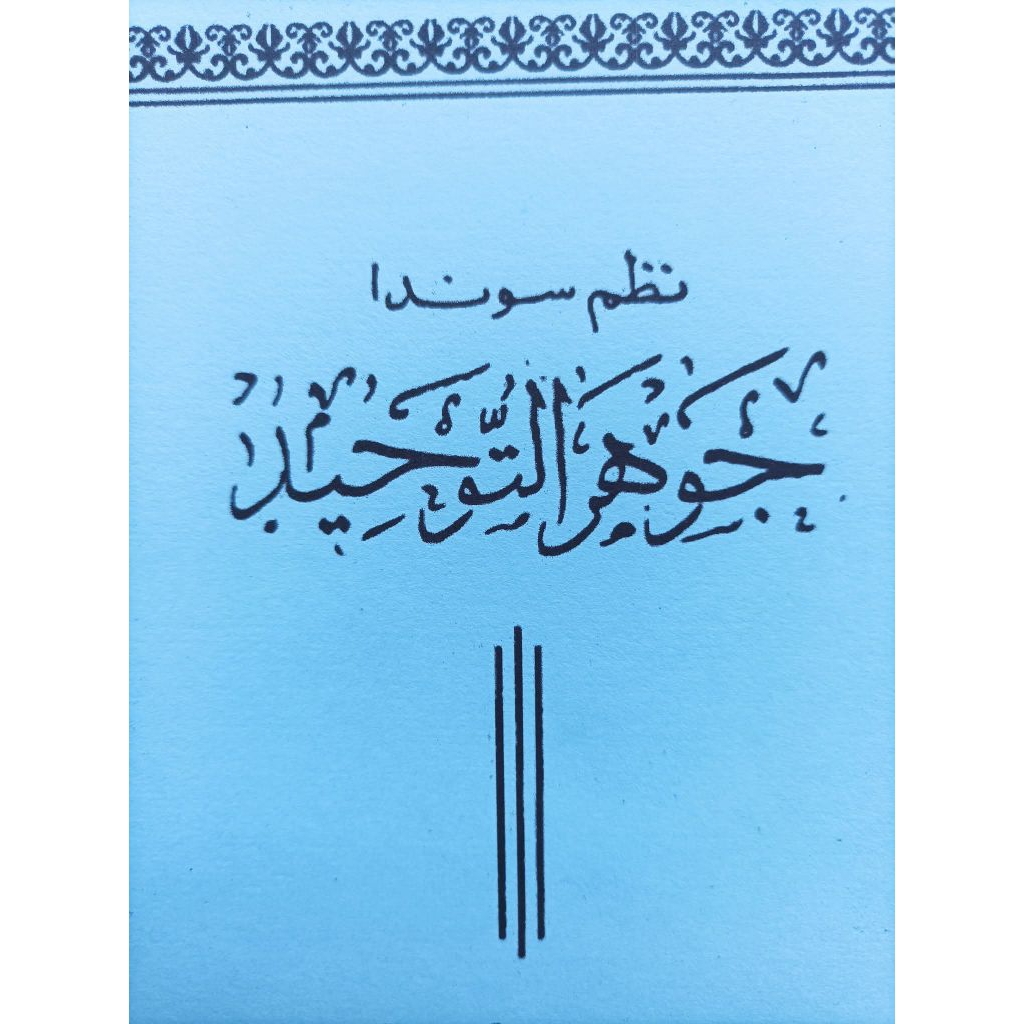 نظم سوندا
جَوْهَرُ التَّوْحِيْدِ